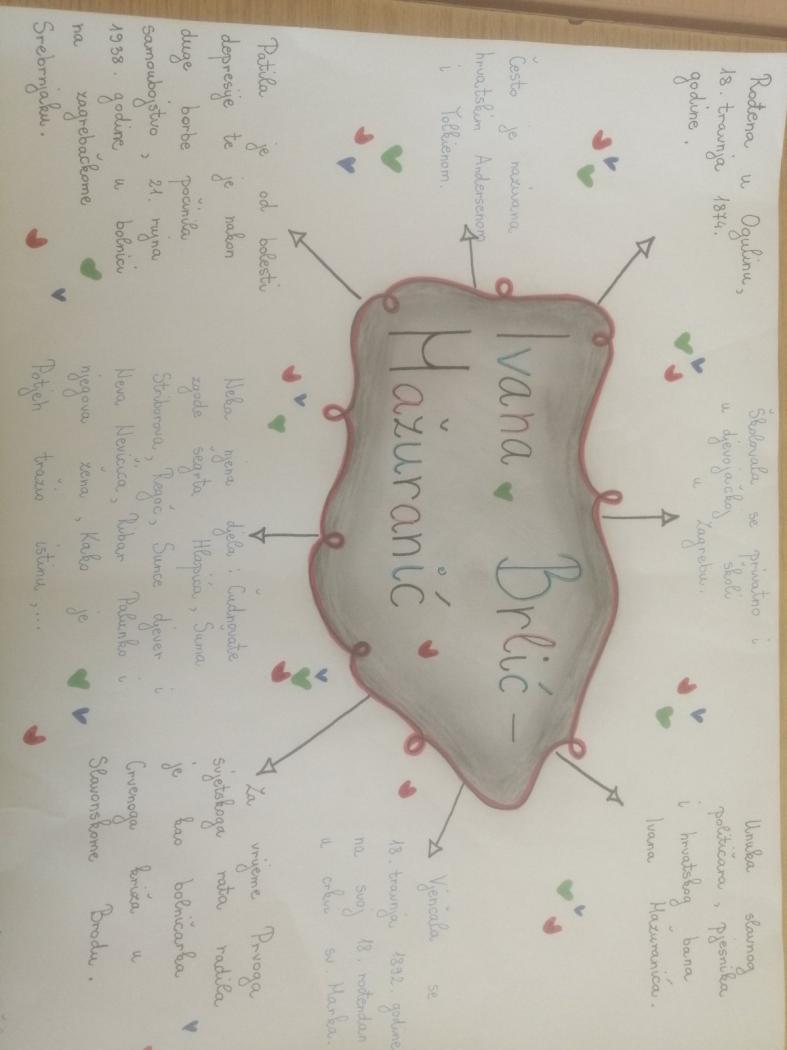 Ivana Brlić-
Mažuranić
Rođena u Ogulinu,
18. travnja 1874.
godine.
Školovala se privatno i
u djevojačkoj školi
u Zagrebu.
Unuka slavnog
političara, pjesnika
i hrvatskog bana
Ivana Mažuranića.
Često je nazivana
hrvatskim Andersenom
i Tolkienom.
Vjenčala se
18. travnja 1892. godine
na svoj 18. rođendan
u crkvi sv. Marka.
Patila je od bolesti
depresije te je nakon
duge borbe počinila
samoubojstvo, 21. rujna
1938. godine u bolnici
na zagrebačkome
Srebrnjaku.
Neka njena djela: Čudnovate
zgode šegrta Hlapića, Šuma
Striborova, Regoč, Sunce djever i
Neva Nevičica, Ribar Palunko i
njegova žena, Kako je
Potjeh tražio istinu,...
Za vrijeme Prvoga
svjetskoga rata radila
je kao bolničarka
Crvenoga križa u
Slavonskome Brodu.